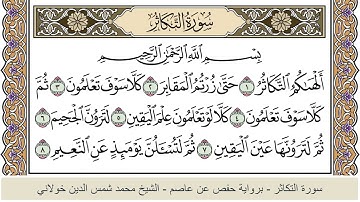 سُورَةُ التَّكَاثُرِ
بِسْمِ اللَّهِ الرَّحْمَٰنِ الرَّحِيمِ
أَلْهَاكُمُ التَّكَاثُرُ ١ حَتَّىٰ زُرْتُمُ الْمَقَابِرَ ٢ كَلَّا سَوْفَ تَعْلَمُونَ ٣ ثُمَّ
كَلَّا سَوْفَ تَعْلَمُونَ ٤ كَلَّا لَوْ تَعْلَمُونَ عِلْمَ الْيَقِينِ ٥ لَتَرَوُنَّ الْجَحِيمَ ٦
ثُمَّ لَتَرَوُنَّهَا عَيْنَ الْيَقِينِ ٧ ثُمَّ لَتُسْأَلُنَّ يَوْمَئِذٍ عَنِ النَّعِيمِ ٨
سورة التكاثر - برواية حفص عن عاصم - الشيخ محمد شمس الدين خولاني